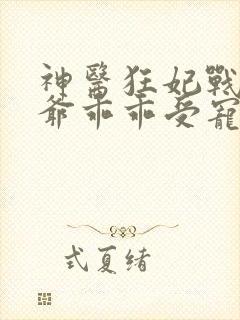 神醫狂妃戰
爺乖乖受寵
式夏緒